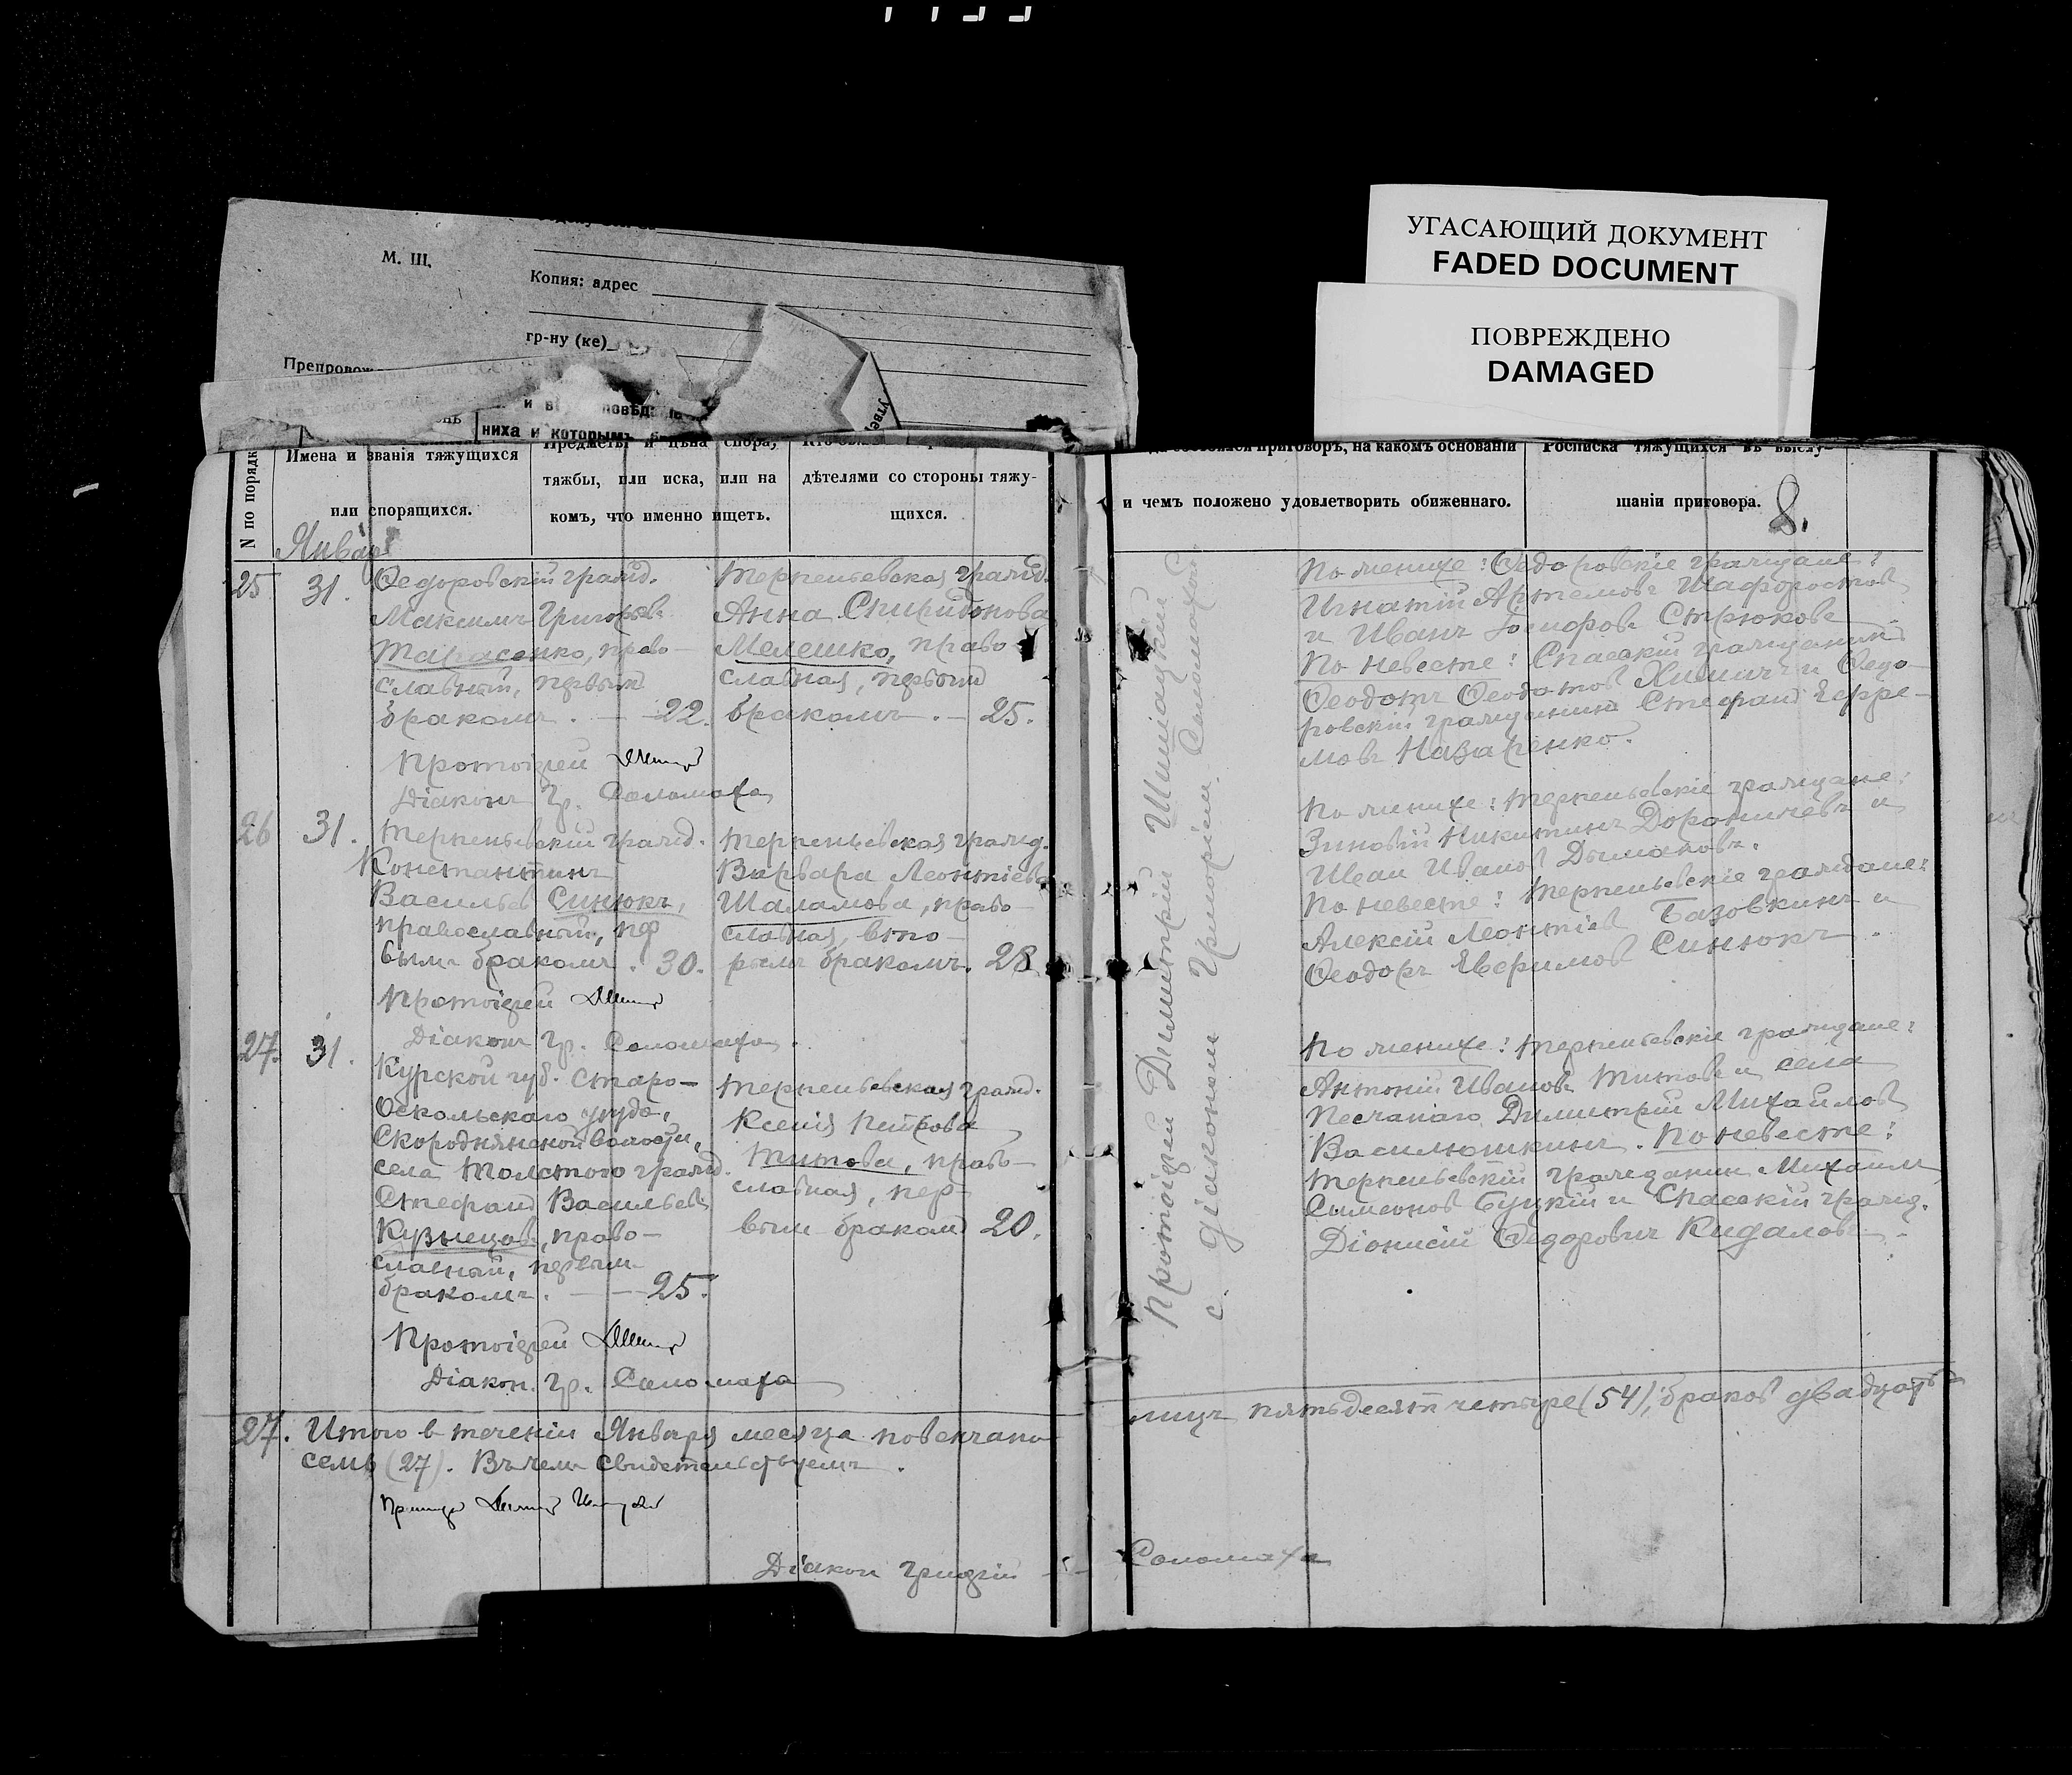 М. Ш.
Копия: адрес
гр-ну (ке)
УГАСАЮЩИЙ ДОКУМЕНТ
FADED DOCUMENT
ПОВРЕЖДЕНО
DAMAGED
ниха и которымъ
N по порядк
Имена и званія тяжущихся
или спорящихся.
Предметы и цѣна спора,
тяжбы, или иска, или на
комъ, что именно ищетъ.
дѣтелями со стороны тяжу-
щихся.
приговоръ, на какомъ основаніи
и чемъ положено удовлетворить обиженнаго.
Росписка тяжущихся въ выслу-
шаніи приговора.
8.
Январь
25 31. Ѳедоровскій гражд.
Максимъ Григорьев
Тарасенко, право-
славный, первым
бракомъ. — 22.
Терпеньевская гражд.
Анна Спиридонова
Мелешко, право
славная, первым
бракомъ. — 25.
Протоіерей
Діаконъ Гр. Соломаха
По женихе: Ѳедоровскіе граждане:
Игнатій Артемовъ Шафоростов
и Иванъ Стрюков
По невесте: Спасскій гражданин
Ѳеодотъ Ѳеодотов и Ѳедо-
ровскій гражданинъ Стефанъ Ефре-
мовъ Назаренко.
26 31. Терпеньевскій гражд.
Константинъ
Васильев Синюкъ,
православный, пер
вымъ бракомъ. 30.
Терпеньевская гражд.
Варвара Леонтіева
Шаламова, право-
славная, вто-
рымъ бракомъ. 28
Протоіерей
Діакон Гр. Соломаха.
По женихе: Терпеньевскіе граждане:
Зиновій Никитинъ Дороничевъ и
Иван Иванов Дымаковъ.
По невесте: Терпеньевскіе граждане:
Алексій Леонтіев Базовкинъ и
Ѳеодоръ Евфимов Синюкъ.
27. 31.
Курской губ. Старо-
Оскольскаго уезда,
Скороднянской волости,
села Толстого гражд.
Стефанъ Васильев
Кузнецов, право-
славный, первым
бракомъ. — 25.
Терпеньевская гражд.
Ксенія Петрова
Титова, право-
славная, пер-
вым браком 20.
Протоіерей
Діакон. Гр. Соломаха
По женихе: Терпеньевскіе граждане:
Антоній Иванов Титов и села
Песчанаго Димитрій Михайлов
Василюшкинъ. По невесте:
Терпеньевскій гражданин Михаилъ
Симеонов Буцкій и Спасскій гражд.
Діонисій Ѳедорович Кидалов.
Протоіерей Димитрій Шишацкій
с діакономъ Григоріем Соломахой
27. Итого в теченіи Января месяца повенчано
лицъ пятьдесят четыре (54), браков двадцать
семь (27). Въ чем свидетельствуемъ.
Діакон Григорій
Соломаха